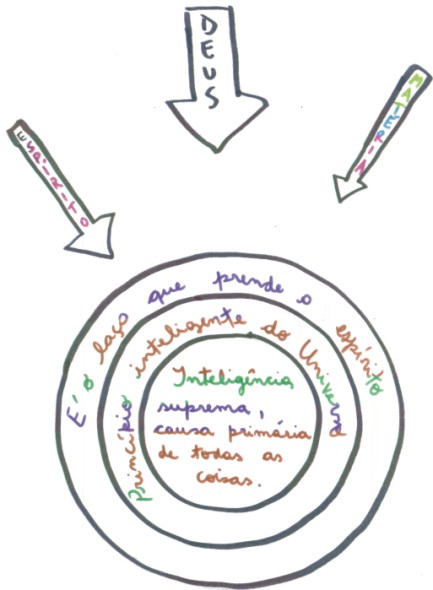 DEUS
ESPÍRITO
MATÉRIA
É o laço que prende o espírito
Princípio inteligente do Universo
Inteligência
suprema,
causa primária
de todas as
coisas.